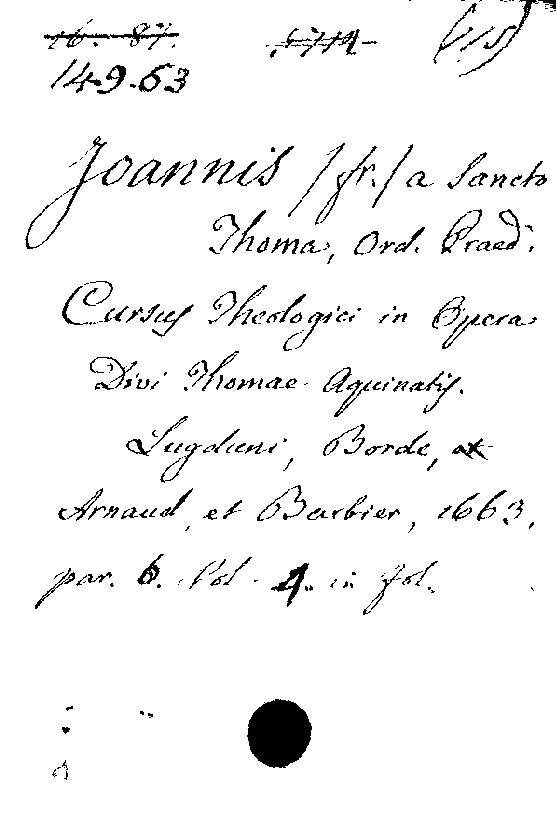 16. 87. 5714 (115)
149.63
Joannis /fr./ a Sancto
Thoma, Ord. Praed.
Cursus Theologici in Opera
Divi Thomae Aquinatis.
Lugduni, Borde,
Arnaud, et Barbier, 1663,
par. 6. Vol. 4. in fol.